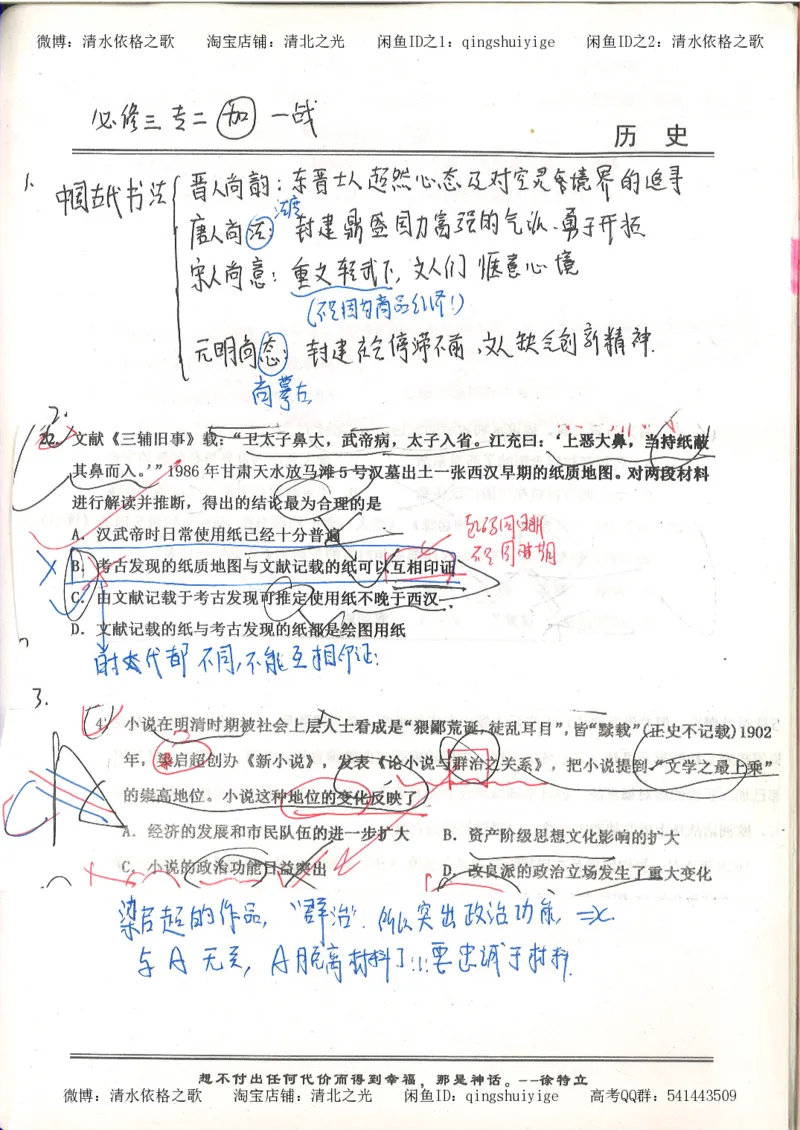 微博：清水依格之歌 淘宝店铺：清北之光 闲鱼ID之1：qingshuiyige 闲鱼ID之2：清水依格之歌
必修三 专二 加 一战
历 史
1. 中国古代书法
晋人尚韵：东晋士人超然心态及对空灵境界的追寻
法度
唐人尚法：封建鼎盛国力富强的气派、勇于开拓
宋人尚意：重文轻武下，文人们惬意心境
(不是因为商品经济！)
元明尚态：封建社会停滞不前、文人缺乏创新精神.
尚摹古
2.
22. 文献《三辅旧事》载：“卫太子鼻大，武帝病，太子入省。江充曰：‘上恶大鼻，当持纸蔽
其鼻而入。’”1986年甘肃天水放马滩5号汉墓出土一张西汉早期的纸质地图。对两段材料
进行解读并推断，得出的结论最为合理的是
A．汉武帝时日常使用纸已经十分普遍
B．考古发现的纸质地图与文献记载的纸可以互相印证
C．由文献记载于考古发现可推定使用纸不晚于西汉
D．文献记载的纸与考古发现的纸都是绘图用纸
时代都不同,不能互相印证;
3.
4. 小说在明清时期被社会上层人士看成是“猥鄙荒诞，徒乱耳目”，皆“黜载”(正史不记载)1902
年，梁启超创办《新小说》，发表《论小说与群治之关系》，把小说提到“文学之最上乘”
的崇高地位。小说这种地位的变化反映了
A．经济的发展和市民队伍的进一步扩大 B．资产阶级思想文化影响的扩大
C．小说的政治功能日益突出 D．改良派的政治立场发生了重大变化
梁启超的作品，“群治”.所以突出政治功能，
与A无关，A脱离材料了!!!要忠诚于材料.
想不付出任何代价而得到幸福，那是神话。--徐特立
微博：清水依格之歌 淘宝店铺：清北之光 闲鱼ID：qingshuiyige 高考QQ群：541443509